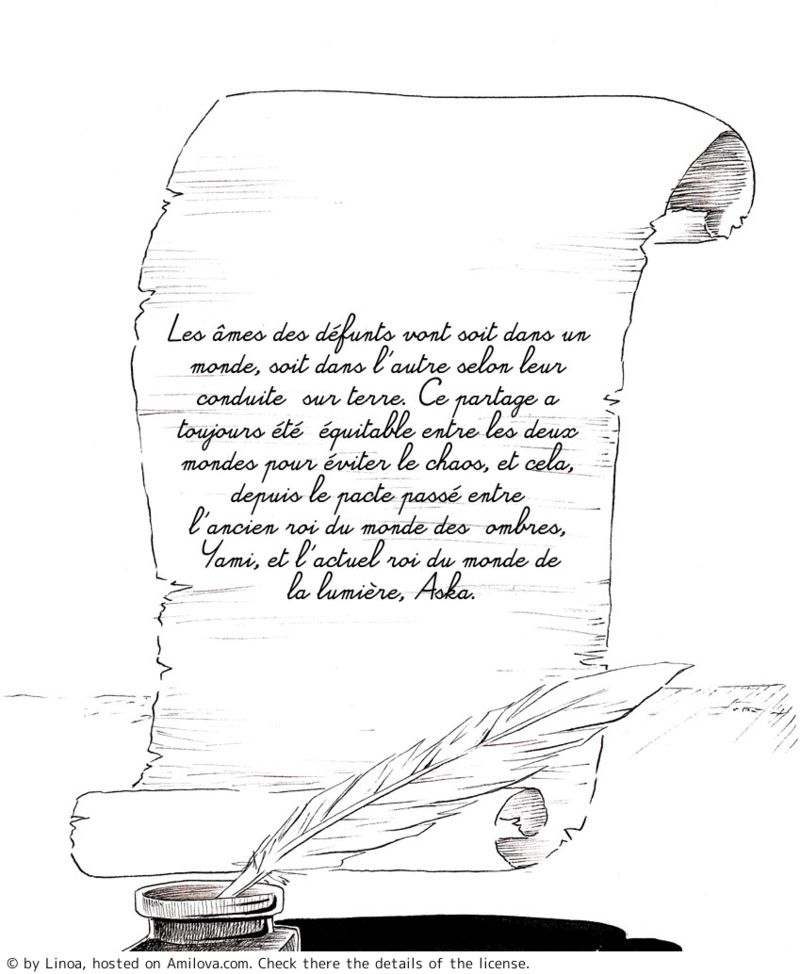 Les âmes des défunts vont soit dans un
monde, soit dans l'autre selon leur
conduite sur terre. Ce partage a
toujours été équitable entre les deux
mondes pour éviter le chaos, et cela,
depuis le pacte passé entre
l'ancien roi du monde des ombres,
Yami, et l'actuel roi du monde de
la lumière, Aska.
© by Linoa, hosted on Amilova.com. Check there the details of the license.